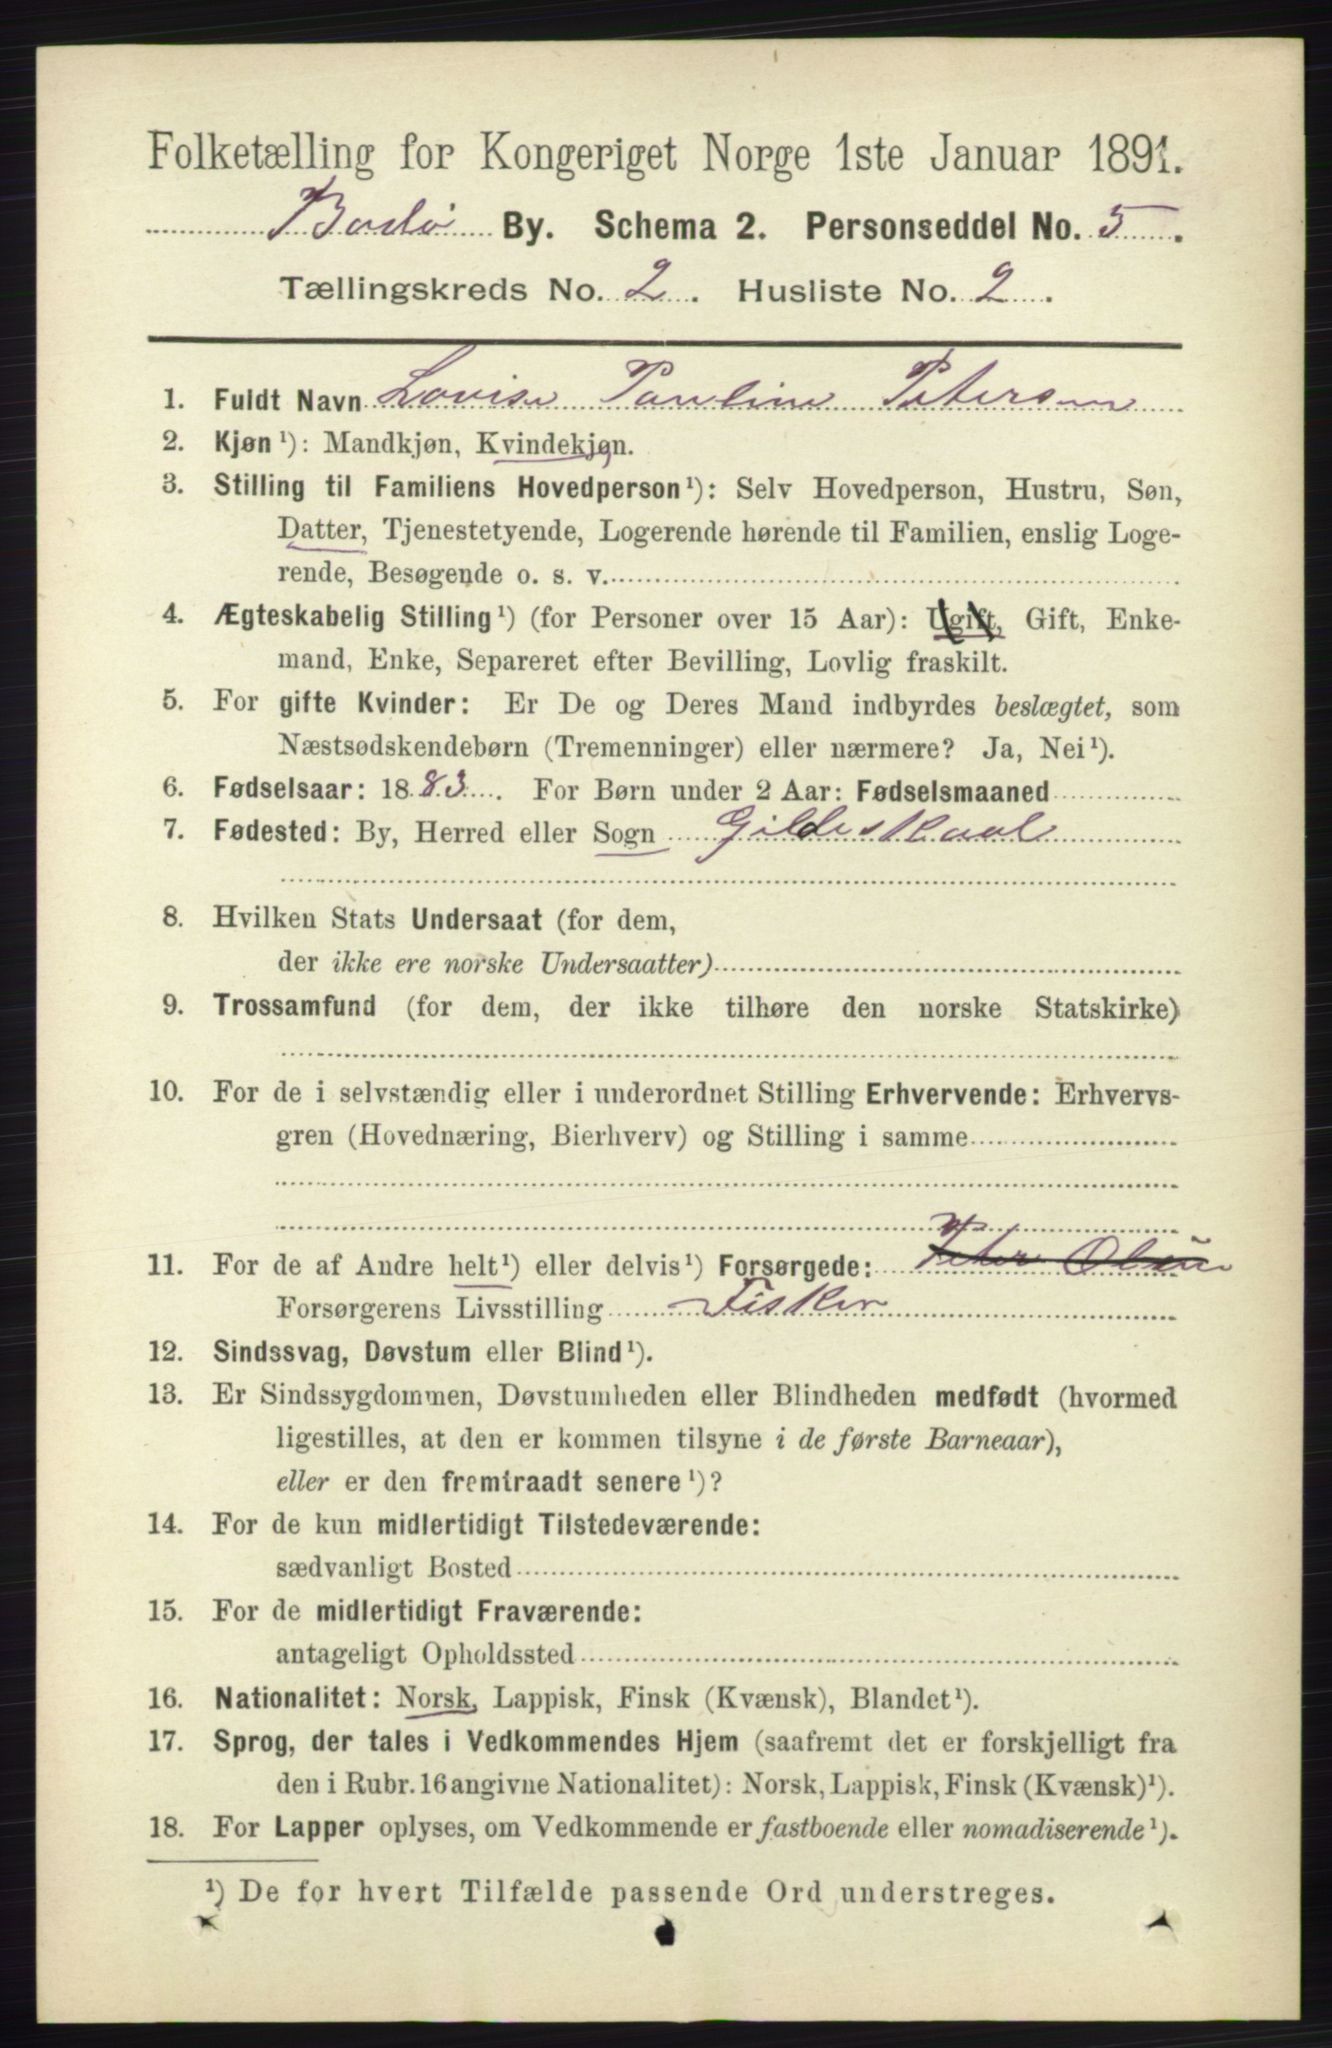 Folketælling for Kongeriget Norge 1ste Januar 1891.
Bodø By. Schema 2. Personseddel No. 5.
Tællingskreds No. 2. Husliste No. 2.
1. Fuldt Navn Lovise Pauline Petersen
2. Kjøn¹): Mandkjøn, Kvindekjøn.
3. Stilling til Familiens Hovedperson¹): Selv Hovedperson, Hustru, Søn,
Datter, Tjenestetyende, Logerende hørende til Familien, enslig Loge-
rende, Besøgende o. s. v.
4. Ægteskabelig Stilling¹) (for Personer over 15 Aar): Ugift, Gift, Enke-
mand, Enke, Separeret efter Bevilling, Lovlig fraskilt.
5. For gifte Kvinder: Er De og Deres Mand indbyrdes beslægtet, som
Næstsødskendebørn (Tremenninger) eller nærmere? Ja, Nei¹).
6. Fødselsaar: 1883. For Børn under 2 Aar: Fødselsmaaned
7. Fødested: By, Herred eller Sogn Gildeskaal
8. Hvilken Stats Undersaat (for dem,
der ikke ere norske Undersaatter)
9. Trossamfund (for dem, der ikke tilhøre den norske Statskirke)
10. For de i selvstændig eller i underordnet Stilling Erhvervende: Erhvervs-
gren (Hovednæring, Bierhverv) og Stilling i samme
11. For de af Andre helt¹) eller delvis¹) Forsørgede: Peter Olsen
Forsørgerens Livsstilling Fisker
12. Sindssvag, Døvstum eller Blind¹).
13. Er Sindssygdommen, Døvstumheden eller Blindheden medfødt (hvormed
ligestilles, at den er kommen tilsyne i de første Barneaar),
eller er den fremtraadt senere¹)?
14. For de kun midlertidigt Tilstedeværende:
sædvanligt Bosted
15. For de midlertidigt Fraværende:
antageligt Opholdssted
16. Nationalitet: Norsk, Lappisk, Finsk (Kvænsk), Blandet¹).
17. Sprog, der tales i Vedkommendes Hjem (saafremt det er forskjelligt fra
den i Rubr. 16 angivne Nationalitet): Norsk, Lappisk, Finsk (Kvænsk)¹).
18. For Lapper oplyses, om Vedkommende er fastboende eller nomadiserende¹).
¹) De for hvert Tilfælde passende Ord understreges.